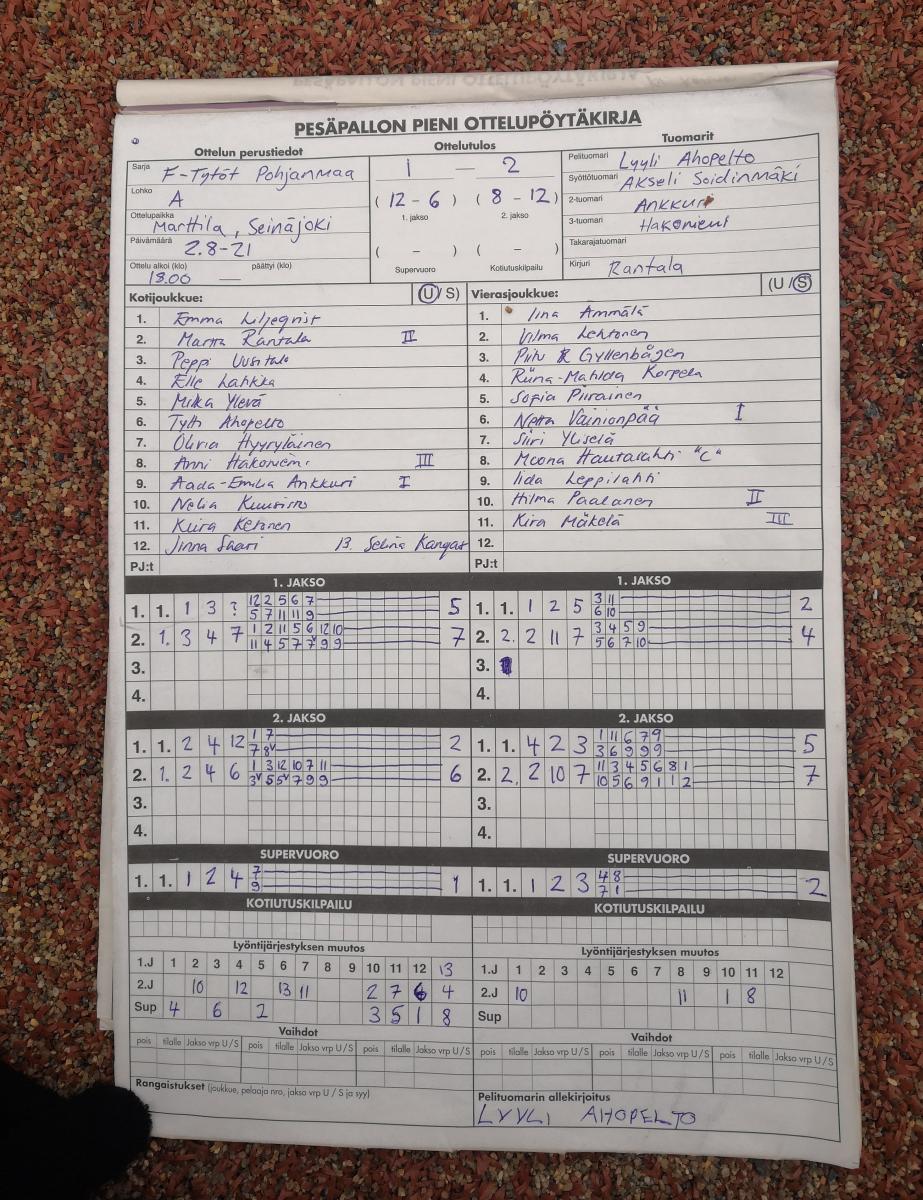 PESÄPALLON PIENI OTTELUPÖYTÄKIRJA
Ottelun perustiedot
Ottelutulos
Tuomarit
Sarja F-Tytöt Pohjanmaa
Lohko A
Ottelupaikka Marttila, Seinäjoki
Päivämäärä 2.8-21
Ottelu alkoi (klo) päättyi (klo)
18.00 —
1 — 2
( 12 - 6 ) ( 8 - 12 )
1. jakso 2. jakso
( - ) ( - )
Supervuoro Kotiutuskilpailu
Pelituomari Lyyli Ahopelto
Syöttötuomari Akseli Soidinmäki
2-tuomari Ankkuri
3-tuomari Hakoniemi
Takarajatuomari
Kirjuri Rantala
Kotijoukkue: (U/S)
1. Emma Liljeqvist
2. Martta Rantala II
3. Peppi Uusitalo
4. Elle Lahkka
5. Milka Ylevä
6. Tytti Ahopelto
7. Olivia Hyyryläinen
8. Anni Hakoniemi III
9. Aada-Emilia Ankkuri I
10. Nelia Kuusisto
11. Kiira Ketonen
12. Jinna Saari 13. Selina Kangas
PJ:t
Vierasjoukkue: (U/S)
1. Iina Ammälä
2. Vilma Lehtonen
3. Piitu Gyllenbögen
4. Riina-Matilda Korpela
5. Sofia Piirainen
6. Netta Väinionpää I
7. Siiri Yliselä
8. Moona Hautalahti "C"
9. Iida Leppilahti
10. Hilma Paalanen II
11. Kira Mäkelä III
12.
PJ:t
1. JAKSO
1. 1. 1 3 ? 12 2 5 6 7 5
5 7 11 11 9
2. 1. 3 4 7 1 2 11 5 6 12 10 7
11 4 5 7 7 9 9
3.
4.
1. JAKSO
1. 1. 1 2 5 3 11 2
6 10
2. 2. 2 11 7 3 4 5 9 4
5 6 7 10
3.
4.
2. JAKSO
1. 1. 2 4 12 1 7 2
7 8v
2. 1. 2 4 6 1 3 12 10 7 11 6
3v 5 5v 7 9 9
3.
4.
2. JAKSO
1. 1. 4 2 3 1 11 6 7 9 5
3 6 9 9 9
2. 2. 2 10 7 11 3 4 5 6 8 1 7
10 5 6 9 1 1 2
3.
4.
SUPERVUORO
1. 1. 1 2 4 7 1
9
SUPERVUORO
1. 1. 1 2 3 4 8 2
7 1
KOTIUTUSKILPAILU
KOTIUTUSKILPAILU
Lyöntijärjestyksen muutos
1.J 1 2 3 4 5 6 7 8 9 10 11 12 13
2.J 10 12 13 11 2 7 6 4
Sup 4 6 2 3 5 1 8
Lyöntijärjestyksen muutos
1.J 1 2 3 4 5 6 7 8 9 10 11 12
2.J 10 11 1 8
Sup
Vaihdot
pois tilalle Jakso vrp U/S pois tilalle Jakso vrp U/S pois tilalle Jakso vrp U/S
Vaihdot
pois tilalle Jakso vrp U/S pois tilalle Jakso vrp U/S pois tilalle Jakso vrp U/S
Rangaistukset (joukkue, pelaaja nro, jakso vrp U / S ja syy)
Pelituomarin allekirjoitus
LYYLI AHOPELTO